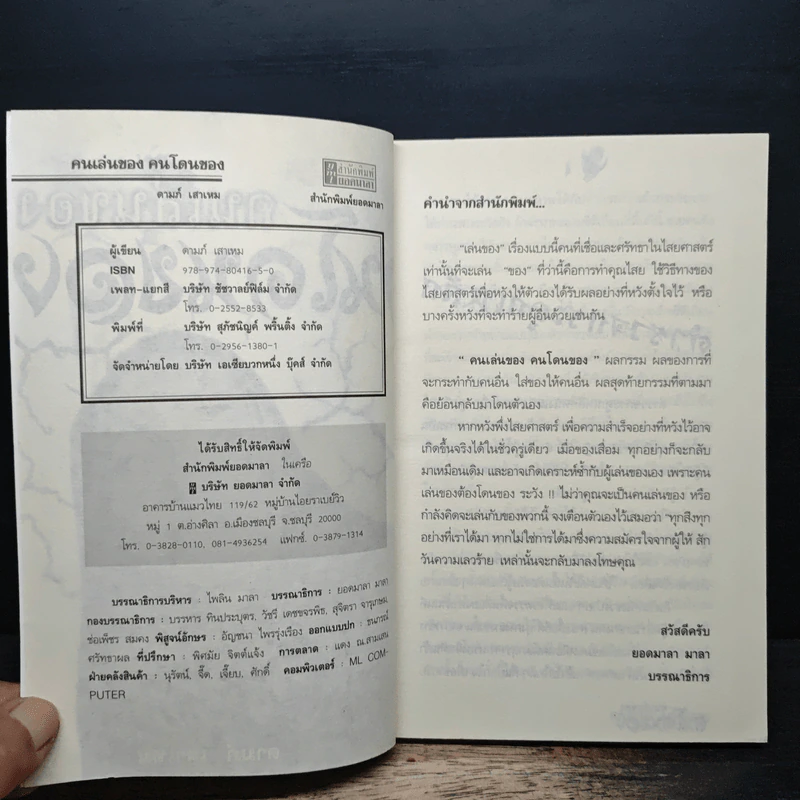 คนเล่นของ คนโดนของ
ดามภ์ เสาเหม
สำนักพิมพ์
ยอดมาลา
สำนักพิมพ์ยอดมาลา
ผู้เขียน ดามภ์ เสาเหม
ISBN 978-974-80416-5-0
เพลท-แยกสี บริษัท ชัชวาลย์ฟิล์ม จำกัด
โทร. 0-2552-8533
พิมพ์ที่ บริษัท สุภัชนิญค์ พริ้นติ้ง จำกัด
โทร. 0-2956-1380-1
จัดจำหน่ายโดย บริษัท เอเซียบวกหนึ่ง บุ๊คส์ จำกัด
ได้รับสิทธิ์ให้จัดพิมพ์
สำนักพิมพ์ยอดมาลา ในเครือ
บริษัท ยอดมาลา จำกัด
อาคารบ้านแมวไทย 119/62 หมู่บ้านไอยราเบย์วิว
หมู่ 1 ต.อ่างศิลา อ.เมืองชลบุรี จ.ชลบุรี 20000
โทร. 0-3828-0110, 081-4936254 แฟกซ์. 0-3879-1314
บรรณาธิการบริหาร : ไพลิน มาลา บรรณาธิการ : ยอดมาลา มาลา
กองบรรณาธิการ : บรรหาร ทินประบุตร, วัชรี เดชขจรพิช, สุจิตรา จารุเกษม,
ช่อเพ็ชร สมคง พิสูจน์อักษร : อัญชนา ไพรรุ่งเรือง ออกแบบปก : ธนาภรณ์
ศรัทธาผล ที่ปรึกษา : พิศมัย จิตต์แจ้ง การตลาด : แดง ณ.สามแสน
ฝ่ายคลังสินค้า : นุรัตน์, จี๊ด, เจี๊ยบ, ศักดิ์ คอมพิวเตอร์ : ML COM-
PUTER
คำนำจากสำนักพิมพ์...
"เล่นของ" เรื่องแบบนี้คนที่เชื่อและศรัทธาในไสยศาสตร์
เท่านั้นที่จะเล่น "ของ" ที่ว่านี้คือการทำคุณไสย ใช้วิธีทางของ
ไสยศาสตร์เพื่อหวังให้ตัวเองได้รับผลอย่างที่หวังตั้งใจไว้ หรือ
บางครั้งหวังที่จะทำร้ายผู้อื่นด้วยเช่นกัน
" คนเล่นของ คนโดนของ " ผลกรรม ผลของการที่
จะกระทำกับคนอื่น ใส่ของให้คนอื่น ผลสุดท้ายกรรมที่ตามมา
คือย้อนกลับมาโดนตัวเอง
หากหวังพึ่งไสยศาสตร์ เพื่อความสำเร็จอย่างที่หวังไว้อาจ
เกิดขึ้นจริงได้ในชั่วครู่เดียว เมื่อของเสื่อม ทุกอย่างก็จะกลับ
มาเหมือนเดิม และอาจเกิดเคราะห์ซ้ำกับผู้เล่นของเอง เพราะคน
เล่นของต้องโดนของ ระวัง !! ไม่ว่าคุณจะเป็นคนเล่นของ หรือ
กำลังคิดจะเล่นกับของพวกนี้ จงเตือนตัวเองไว้เสมอว่า "ทุกสิ่งทุก
อย่างที่เราได้มา หากไม่ใช่การได้มาซึ่งความสมัครใจจากผู้ให้ สัก
วันความเลวร้าย เหล่านั้นจะกลับมาลงโทษคุณ
สวัสดีครับ
ยอดมาลา มาลา
บรรณาธิการ